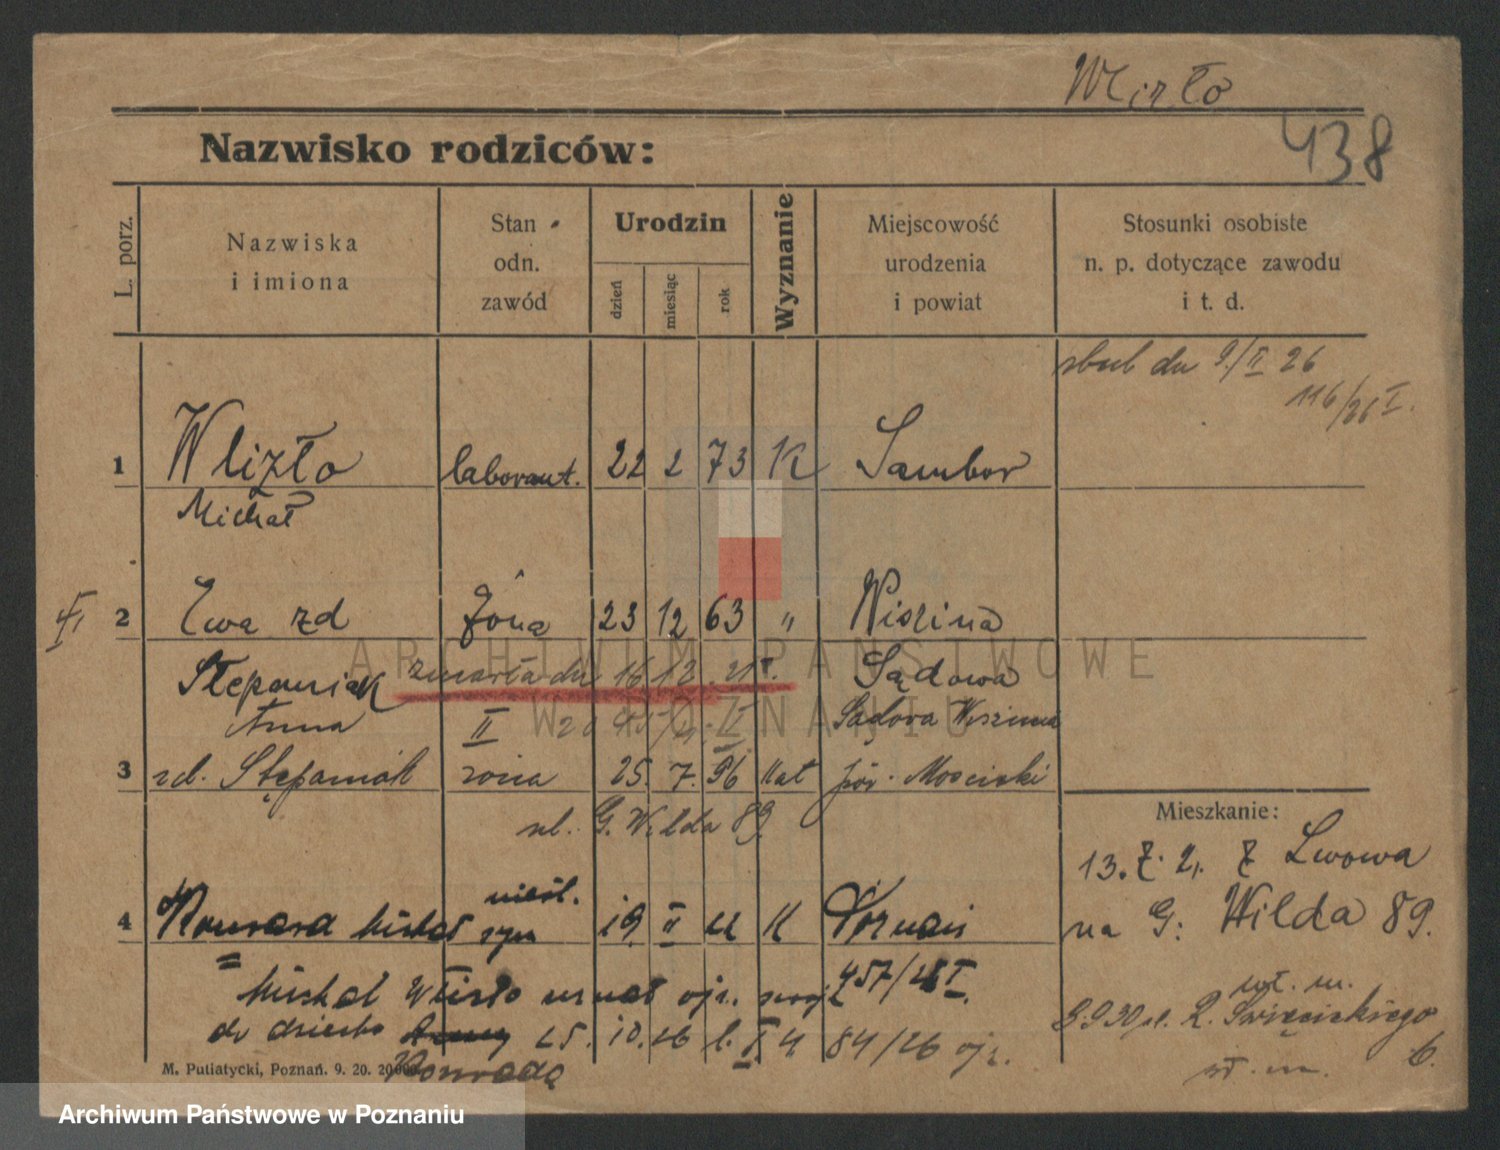 Wizło
438
Nazwisko rodziców:
L. porz.
Nazwiska
i imiona
Stan
odn.
zawód
Urodzin
dzień
miesiąc
rok
Wyznanie
Miejscowość
urodzenia
i powiat
Stosunki osobiste
n. p. dotyczące zawodu
i t. d.
ślub dn 9/II 26
116/26 I.
1 Wlizło laborant. 22 2 73 K Sambor
Michał
2 Ewa zd żona 23 12 63 " Wiszina
Stepaniak zmarła dn 16 12 21 r. Sądowa
Anna II Sądova Wiszinia
3 zd. Stępaniak żona 25. 7. 96 kat pow. Mosciski
ul. G. Wilda 89.
Mieszkanie:
13. 7. 21. Z Lwowa
na G: Wilda 89.
nieśl.
4 Konrad Michał syn 19. II K Poznań
Michał Wlizło uznał ojc. swoje 457/28 I.
do dziecka 25. 10. 26 84/26 ojc.
Konrada
wł. m.
8.9.30 ul. R. Święcickiego
6.
wł. m.
M. Putiatycki, Poznań. 9. 20. 20000.
ARCHIWUM PAŃSTWOWE
W POZNANIU
Archiwum Państwowe w Poznaniu